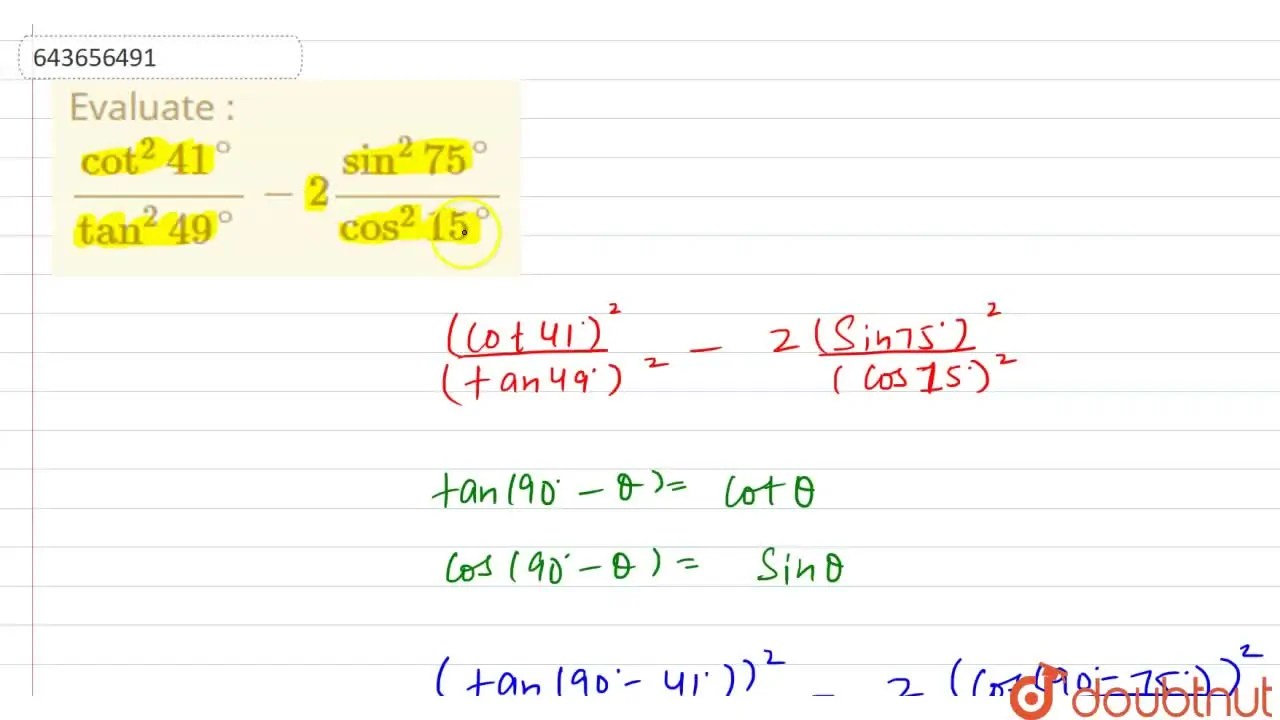 643656491
Evaluate :
cot² 41° / tan² 49° − 2 sin² 75° / cos² 15°
(Cot 41°)² / (tan 49°)² − 2 (Sin 75°)² / (Cos 15°)²
tan(90° − θ) = Cot θ
Cos(90° − θ) = Sin θ
(tan(90° − 41°))² − 2 (Cos(90° − 75°))²
doubtnut